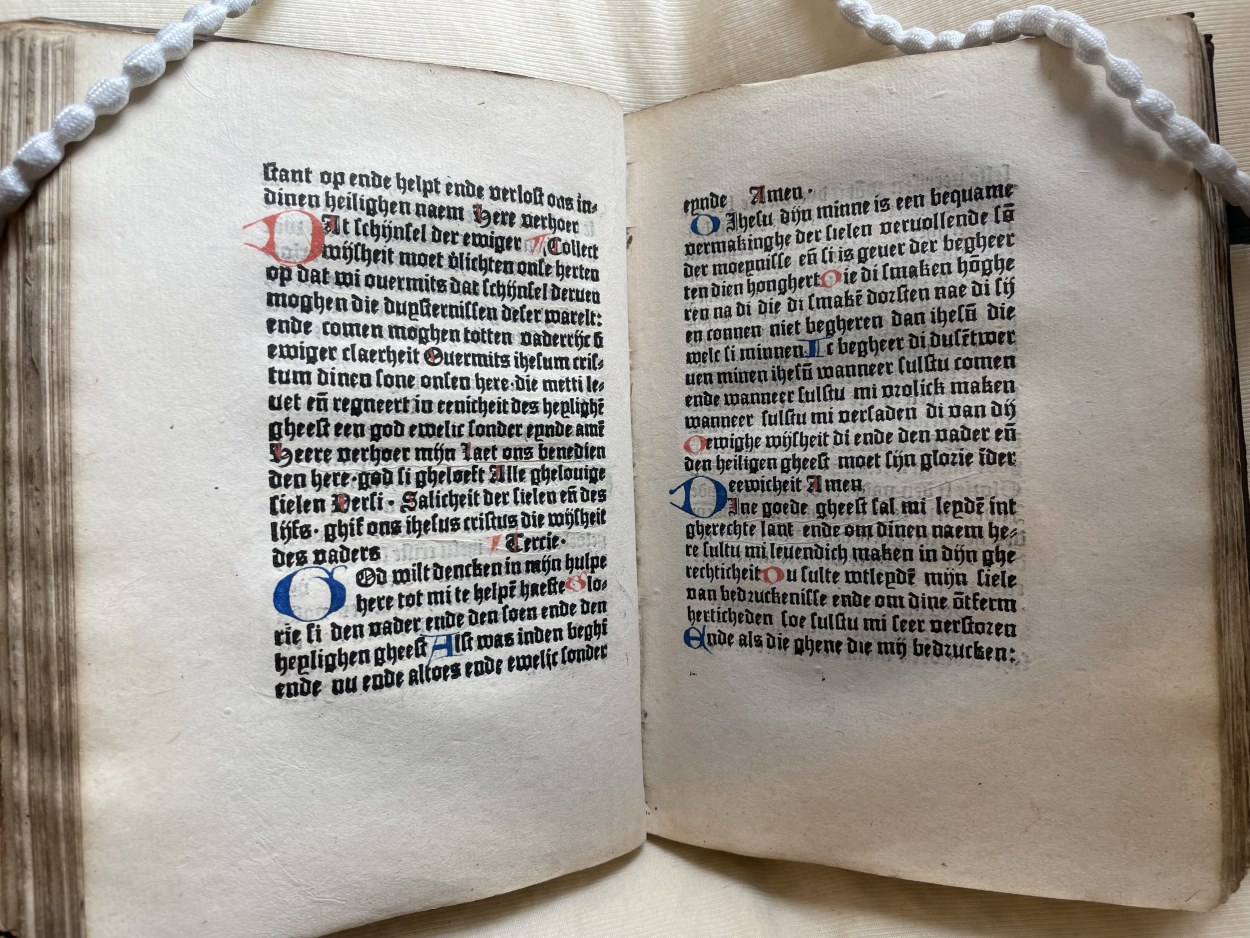 stant op ende helpt ende verlost ons in-
dinen heilighen naem Here verhoer
DAt schijnsel der ewiger Collect
wijsheit moet v̄lichten onse herten
op dat wi ouermits dat schijnsel deruen
moghen die duysternissen deser warelt:
ende comen moghen totten vaderrijc
ewiger claerheit Ouermits ihesum cris-
tum dinen sone onsen here·die metti le-
uet en̄ regneert in eenicheit des heylighē
gheest een god ewelic sonder eynde amē
Heere verhoer mijn Laet ons benedien
den here·god si gheloeft Alle ghelouige
sielen Versi· Salicheit der sielen en̄ des
lijfs· ghif ons ihesus cristus die wijsheit
des vaders Tercie·
GOd wilt dencken in mijn hulpe
here tot mi te helpē haeste Glo-
rie si den vader ende den soen ende den
heylighen gheest Alst was inden beghī
ende nu ende altoes ende ewelijc sonder
eynde Amen·
O Ihesu dijn minne is een bequame
vermakinghe der sielen veruollende sō
der moeynisse en̄ si is geuer der begheer
ten dien honghert Die di smaken hōghe
ren na di die di smakē dorsten nae di sij
en connen niet begheren dan ihesū die
welc si minnen Ic begheer di dusētwer
uen minen ihesū wanneer sulstu comen
ende wanneer sulstu mi vrolick maken
wanneer sulstu mi versaden di van dij
O ewighe wijsheit di ende den vader en̄
den heiligen gheest moet sijn glorie īder
eewicheit Amen
DIne goede gheest sal mi leydē int
gherechte lant ende om dinen naem he-
re sultu mi leuendich maken in dijn ghe
rechticheit Du sulte wtleydē mijn siele
van bedruckenisse ende om dine ōtferm
herticheden soe sulstu mi seer verstoren
Ende als die ghene die mij bedrucken: